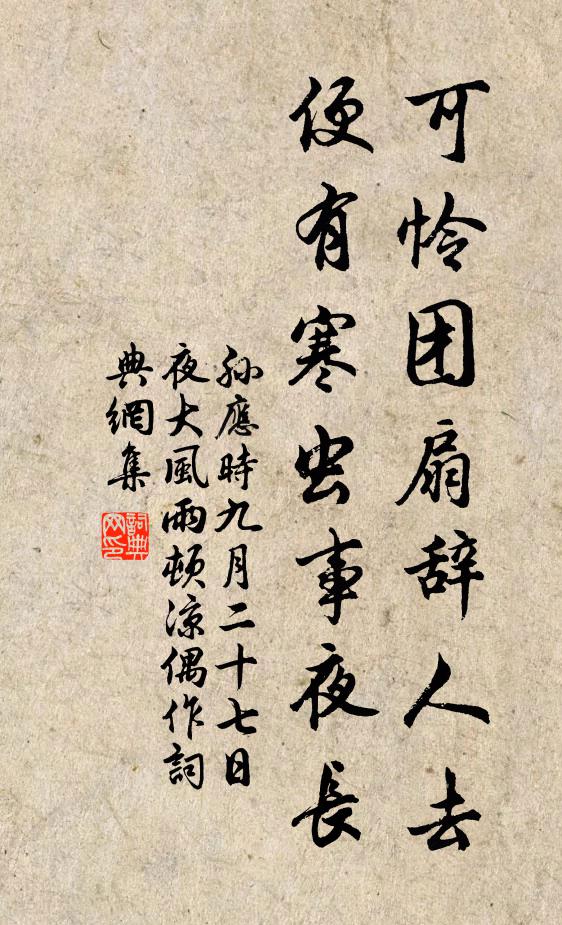 可怜团扇辞人去
便有寒虫事夜长
孙應時九月二十七日
夜大風雨頓涼偶作詞
典網集
詞典網印